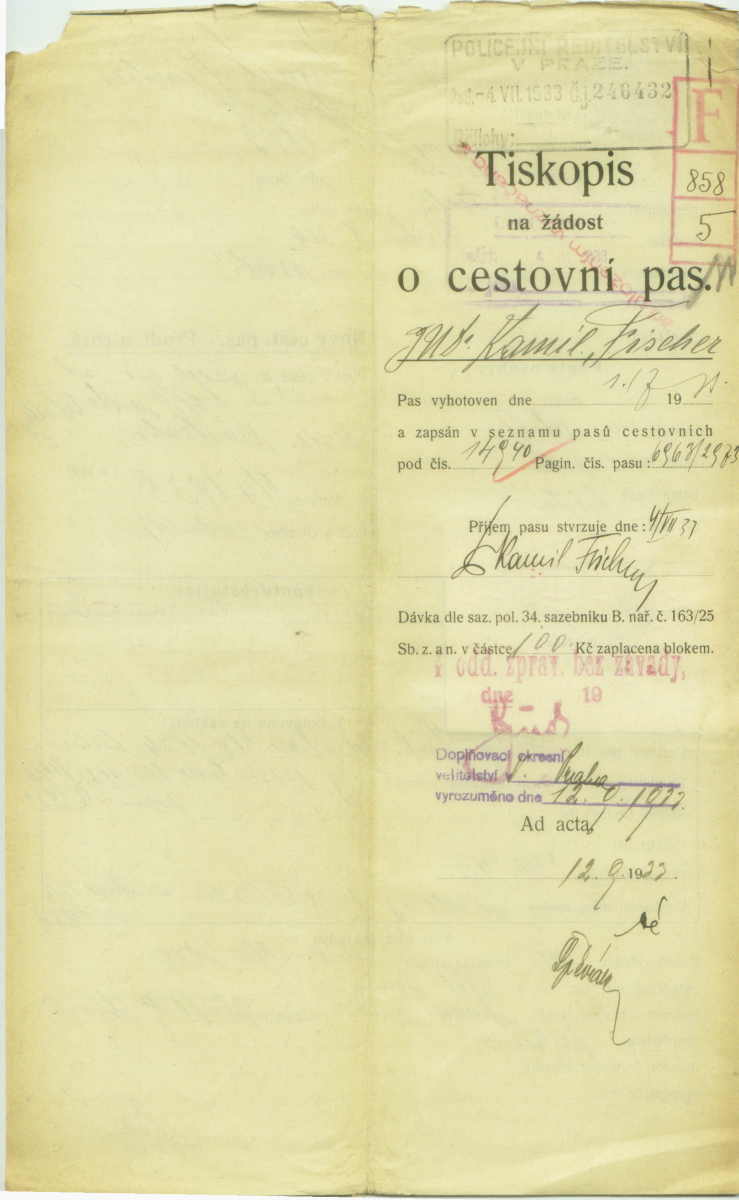 POLICEJNÍ ŘEDITELSTVÍ
V PRAZE.
-4.VII.1933 čj 246432
Přílohy:
F
858
5
Tiskopis
na žádost
o cestovní pas.
Kamil Fischer
Pas vyhotoven dne 19
a zapsán v seznamu pasů cestovních
pod čís. 14940 Pagin. čís. pasu:
Příjem pasu stvrzuje dne: 4/VII 33
Kamil Fischer
Dávka dle saz. pol. 34. sazebníku B. nař. č. 163/25
Sb. z. a n. v částce 100 Kč zaplacena blokem.
V odd. zpráv. bez závady,
dne 19
Doplňovací okresní
velitelství v Praha
vyrozuměno dne 12. 9. 1933.
Ad acta,
12. 9. 1933.